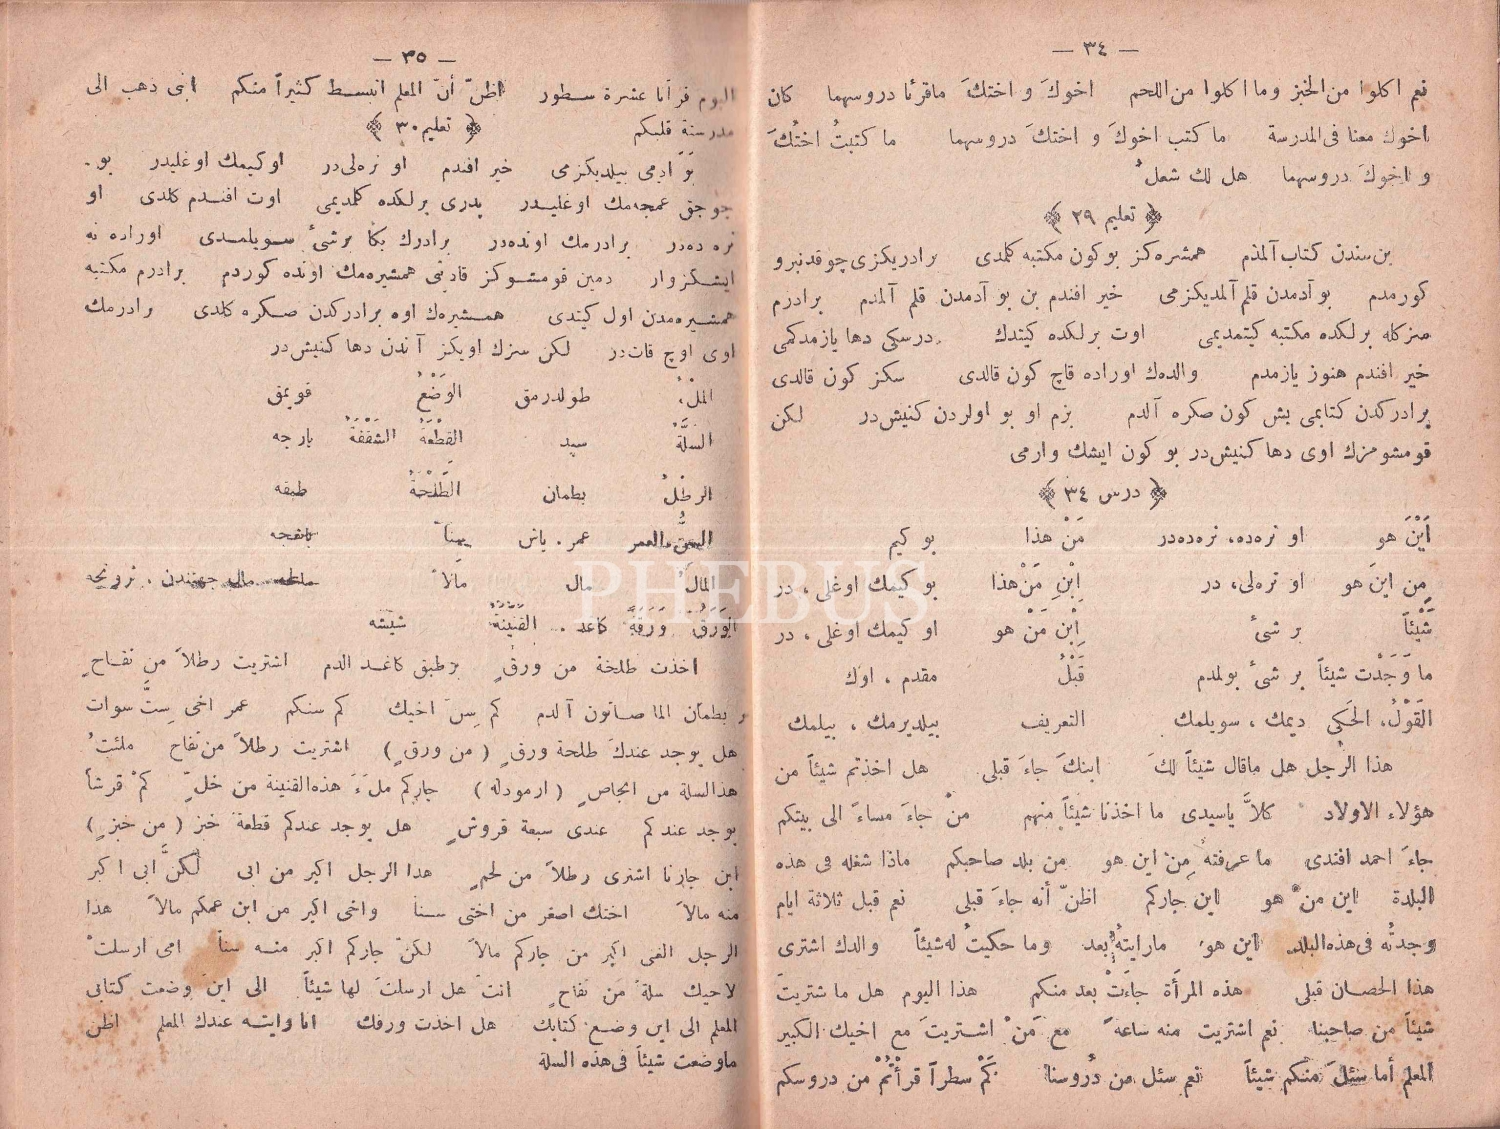 — ٣٤ —
نعم اكلوا من الخبز وما اكلوا من اللحم اخوكَ و اختكَ ماقرئا دروسهما كان
اخوك معنا فى المدرسة ما كتب اخوكَ و اختكَ دروسهما ما كتبتُ اختُكَ
و اخوكَ دروسهما هل لك شغلٌ
﴿ تعليم ٢٩ ﴾
بن سندن كتاب آلمذم همشره كز بو كون مكتبه كلمدى برادريكزى چوقدنبرو
كورمدم بو آدمدن قلم آلمديكزمى خير افندم بن بو آدمدن قلم آلمدم برادرم
سزكله برلكده مكتبه كيتمديمى اوت برلكده كيتدك درسكى دها يازمدكمى
خير افندم هنوز يازمدم والده‌ك اوراده قاچ كون قالدى سكز كون قالدى
برادركدن كتابمى بش كون صكره آلدم بزم او بو اولردن كنيش‌در لكن
قومشومزك اوى دها كنيش‌در بو كون ايشك وارمى
﴿ درس ٣٤ ﴾
اَيْنَ هو او نره‌ده، نره‌ده‌در مَنْ هذا بو كيم
مِن اينَ هو او نره‌لى، در اِبْنِ مَنْ هذا بو كيمك اوغلى، در
شَيْئاً بر شئ اِبْن مَنْ هو او كيمك اوغلى، در
ما وَجَدْت شيئاً بر شئ بولمدم قَبْلُ مقدم ، اوّك
القَوْلُ، الحَكي ديمك ، سويلمك التعريف بيلديرمك ، بيلمك
هذا الرجل هل ماقال شيئاً لكَ ابنكَ جاءَ قبلى هل اخذتم شيئاً من
هؤلاء الاولاد كلاَّ ياسيدى ما اخذنا شيئاً منهم منْ جاءَ مساءً الى بيتكم
جاءَ احمد افندى ما عرفتهُ مِن اين هو من بلد صاحبكم ماذا شغله فى هذه
البلدة اين منْ هو اين جاركم اظنّ أنه جاءَ قبلى نعم قبل ثلاثة ايام
وجدتُه فى هذه البلد اين هو مارايتهُ بعد وما حكيتُ له شيئاً والدك اشترى
هذا الحصان قبلى هذه المرأة جاءَتْ بعد منكم هذا اليوم هل ما شتريتَ
شيئاً من صاحبنا نعم اشتريت منه ساعةً مع مَنْ اشتريتَ مع اخيك الكبير
المعلم أما سئلَ منكم شيئاً نعم سئل من دُروسنا كَمْ سطراً قرأْتُمْ من دروسكم
— ٣٥ —
اليوم قرأنا عشرة سطور اظنّ أنّ المعلم انبسط كثيراً منكم ابنى ذهب الى
مدرسة قلبكم ﴿ تعليم ٣٠ ﴾
بو آدمى بيلديكزمى خير افندم او نره‌لى‌در او كيمك اوغليدر بو.
چوجق عمجه‌مك اوغليدر پدرى برلكده كلمديمى اوت افندم كلدى او
نره ده‌در برادرمك اونده‌در برادرك بكا برشئ سويلمدى اوراده نه
ايشكز وار دمين قومشوكز قادنى همشيره‌مك اونده كوردم برادرم مكتبه
همشيره‌مدن اول كيتدى همشيره‌ك اوه برادركدن صكره كلدى برادرمك
اوى اوچ قات‌در لكن سزك اويكز آندن دها كنيش‌در
المَلْءُ طولدرمق الوَضْعُ قويمق
السَلَّةُ سپد القِطْعَةُ الشَقْفَةُ پارچه
الرطْلُ بطمان الطَلْحَةُ طبقه
السِنُّ، العمر عمر، ياش سِناً ياشجه
المالُ مال مالاً مالجه، مال جهتندن، ثروتجه
الوَرَقُ وَرَقَةٌ كاغد القِنّينَةُ شيشه
اخذت طلحة من ورقٍ برطبق كاغد الدم اشتريت رطلاً من تفاحٍ
بر بطمان الما صاتون آلدم كم سِنّ اخيك كم سنكم عمر اخى سِتُّ سنوات
هل يوجد عندكَ طلحة ورقٍ ( من ورقٍ ) اشتريت رطلاً من تفاح ملئتُ
هذالسلة من انجاصٍ ( ارمودله ) جاركم ملءَ هذه القنينة من خلٍّ كمْ قرشاً
يوجد عندكم عندى سبعة قروشٍ هل يوجد عندكم قطعة خبز ( من خبزٍ )
ابن جارنا اشترى رطلاً من لحمٍ هذا الرجل اكبر من ابى لكنَّ ابى اكبر
منه مالاً اختك اصغر من اختى سناً واخى اكبر من ابن عمكم مالاً هذا
الرجل الغنى اكبر من جاركم مالاً لكنّ جاركم اكبر منه سناً امى ارسلتْ
لاخيك سلة من تفاحٍ انت هل ارسلتَ لها شيئاً الى اينَ وضعت كتابى
المعلم الى اين وضع كتابك هل اخذت ورقك انا رايته عندك المعلم اظن
ماوضعت شيئاً فى هذه السلة
PHEBUS